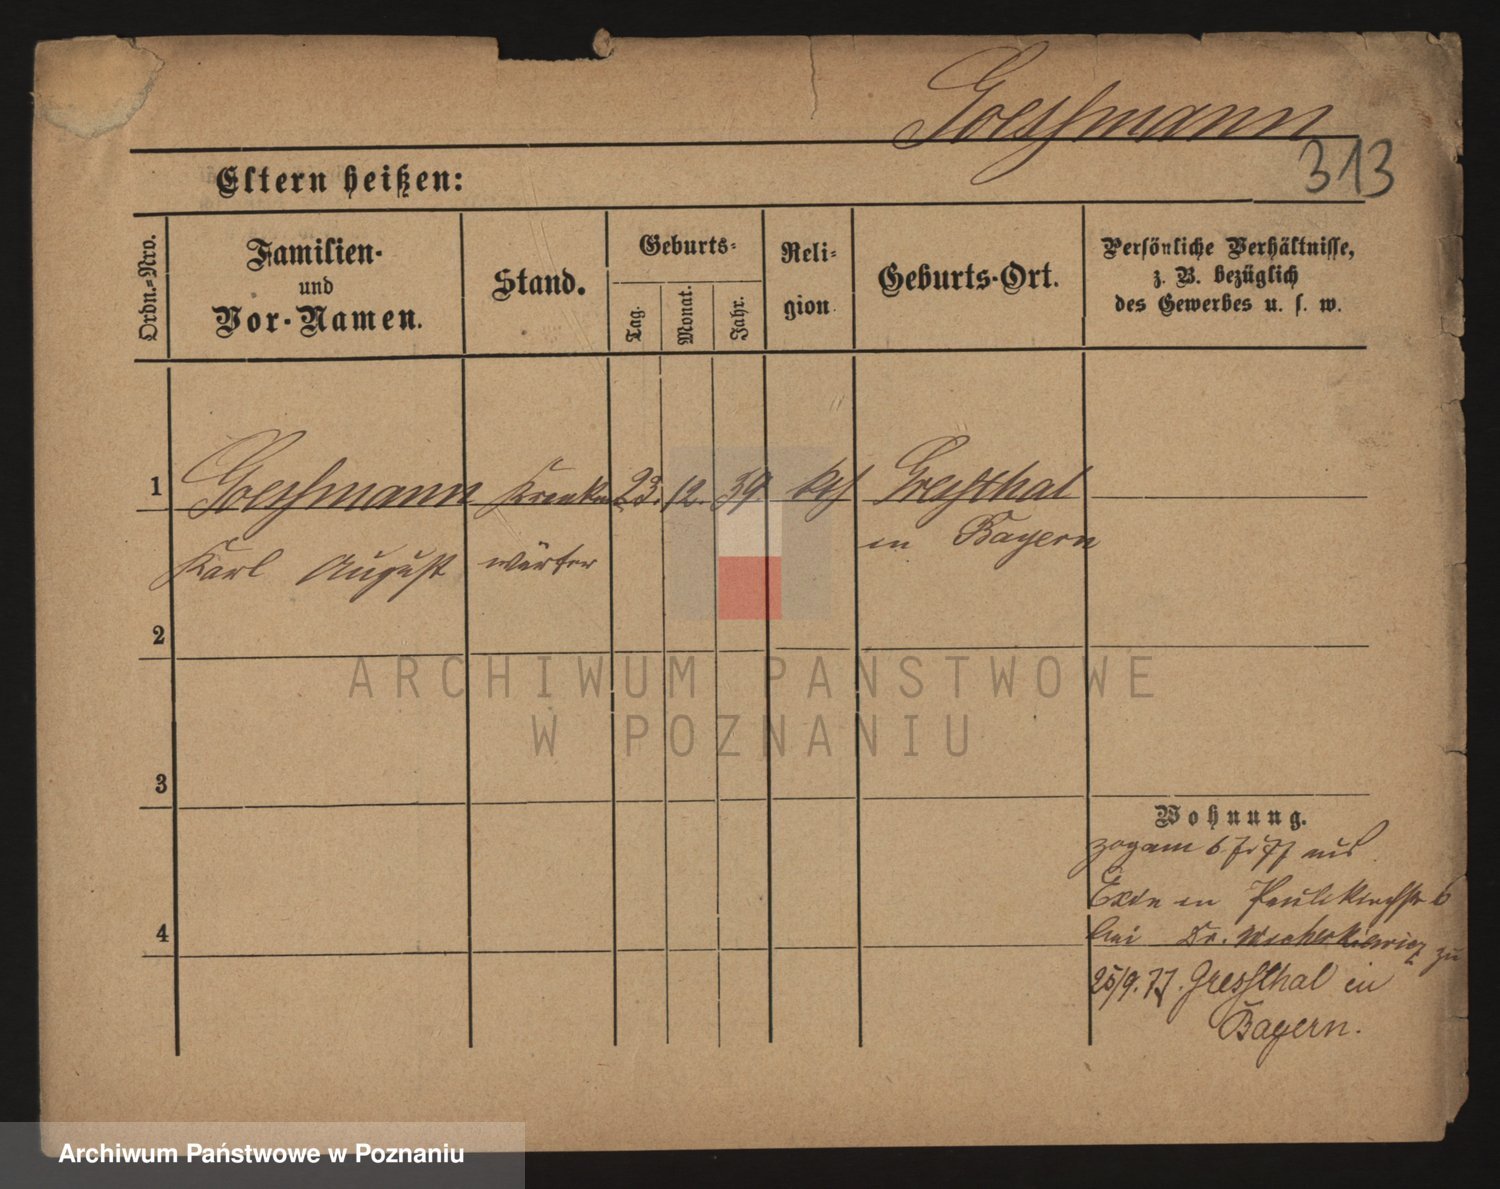 Goeßmann
313
Eltern heißen:
Ordn.-Nro.
Familien-
und
Vor-Namen.
Stand.
Geburts-
Tag.
Monat.
Jahr.
Reli-
gion
Geburts-Ort.
Persönliche Verhältnisse,
z. B. bezüglich
des Gewerbes u. s. w.
1 Goeßmann Kranken 23. 12. 39. kth Greßthal
Karl August wärter in Bayern
2
ARCHIWUM PAŃSTWOWE
W POZNANIU
3
Wohnung.
zog am 6 7 77 aus
Exin in Paulikirchstr 6
4 bei Dr. Wicherkiewicz zu
25/9. 77. Gressthal in
Bayern.
Archiwum Państwowe w Poznaniu